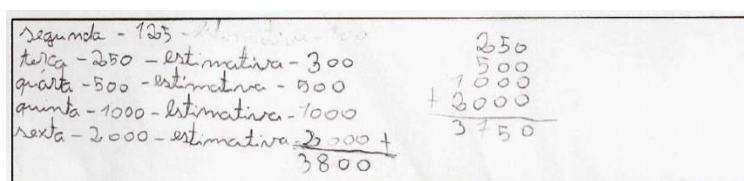 segunda - 125 - estimativa - 100
terça - 250 - estimativa - 300
quárta - 500 - estimativa - 500
quinta - 1000 - estimativa - 1000
sexta - 2000 - estimativa - 2000 +
3800
250
500
1000
+ 2000
3750